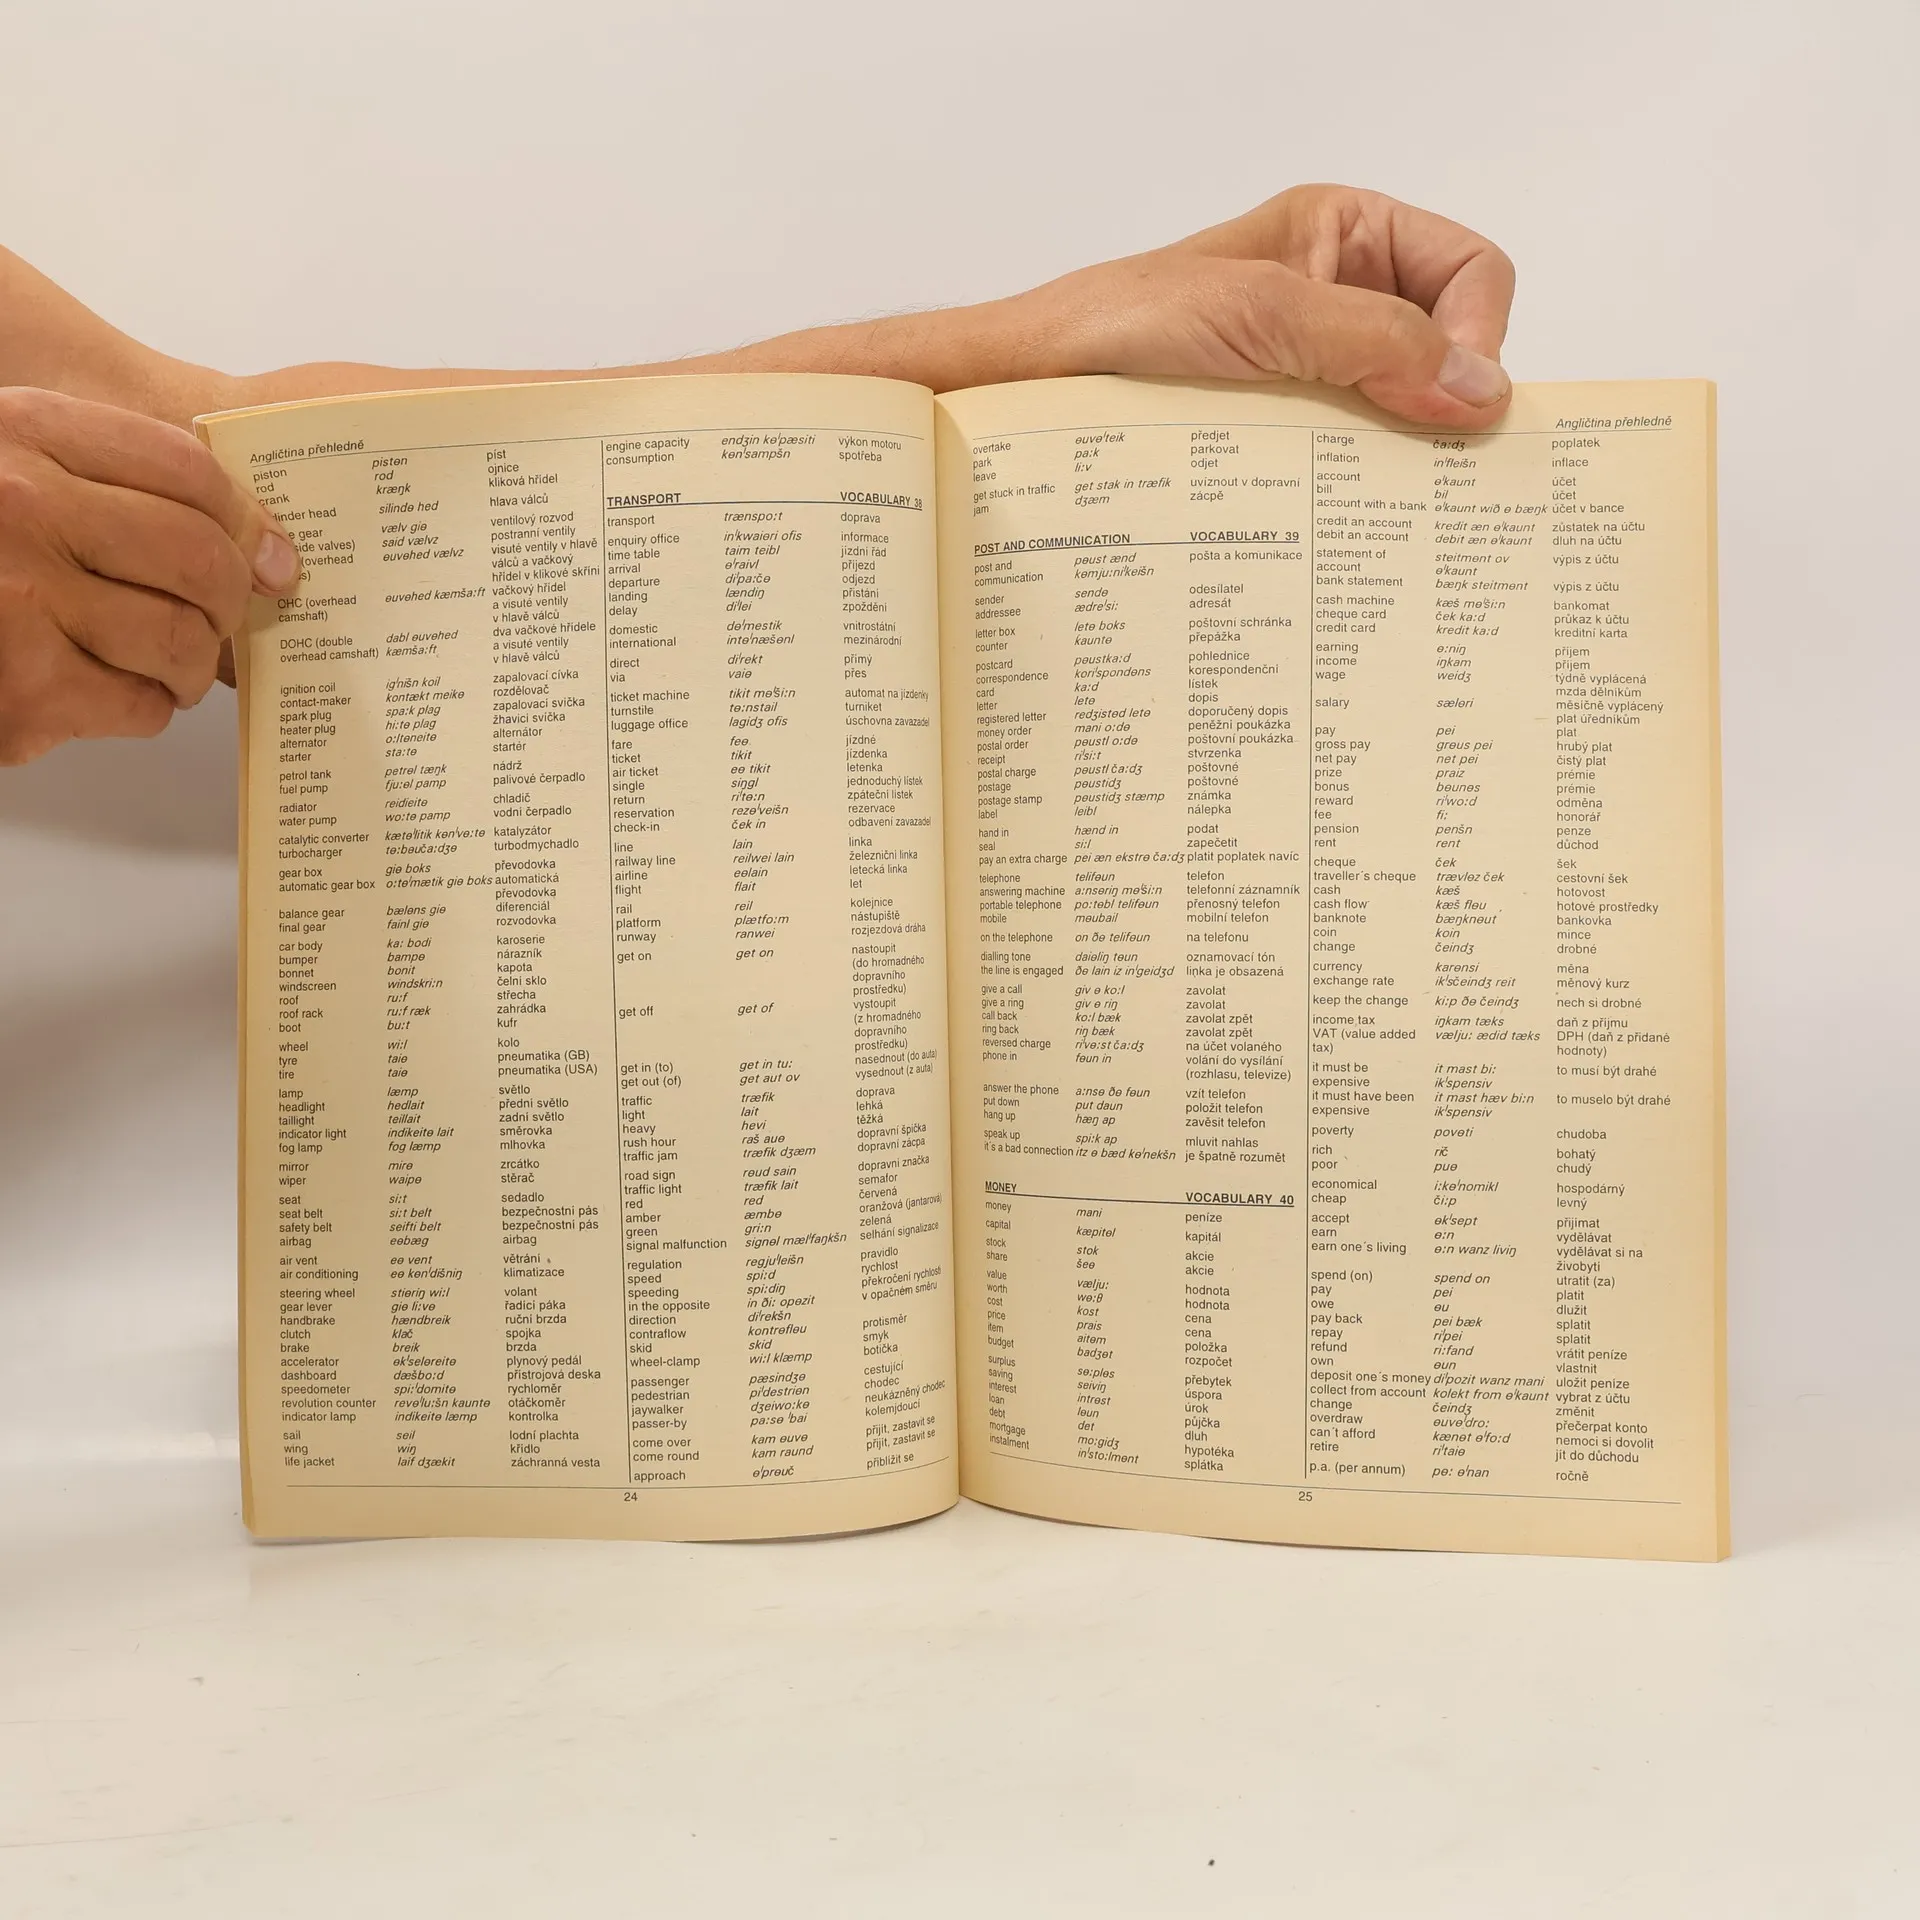 Angličtina přehledně
piston pisten píst
rod rod ojnice
crank kræŋk kliková hřídel
linder head silində hed hlava válců
e gear vælv giə ventilový rozvod
side valves) said vælvz postranní ventily
(overhead əuvəhed vælvz visuté ventily v hlavě
válců a vačkový
hřídel v klikové skříni
OHC (overhead əuvəhed kæmša:ft vačkový hřídel
camshaft) a visuté ventily
v hlavě válců
DOHC (double dabl əuvəhed dva vačkové hřídele
overhead camshaft) kæmša:ft a visuté ventily
v hlavě válců
ignition coil ig'nišn koil zapalovací cívka
contact-maker kontækt meikə rozdělovač
spark plug spa:k plag zapalovací svíčka
heater plug hi:tə plag žhavicí svíčka
alternator o:ltəneitə alternátor
starter sta:tə startér
petrol tank petrəl tæŋk nádrž
fuel pump fju:əl pamp palivové čerpadlo
radiator reidieitə chladič
water pump wo:tə pamp vodní čerpadlo
catalytic converter kætə'litik kən'və:tə katalyzátor
turbocharger tə:bəuča:dʒə turbodmychadlo
gear box giə boks převodovka
automatic gear box o:tə'mætik giə boks automatická
převodovka
balance gear bæləns giə diferenciál
final gear fainl giə rozvodovka
car body ka: bodi karoserie
bumper bampə nárazník
bonnet bonit kapota
windscreen windskri:n čelní sklo
roof ru:f střecha
roof rack ru:f ræk zahrádka
boot bu:t kufr
wheel wi:l kolo
tyre taiə pneumatika (GB)
tire taiə pneumatika (USA)
lamp læmp světlo
headlight hedlait přední světlo
taillight teillait zadní světlo
indicator light indikeitə lait směrovka
fog lamp fog læmp mlhovka
mirror mirə zrcátko
wiper waipə stěrač
seat si:t sedadlo
seat belt si:t belt bezpečnostní pás
safety belt seifti belt bezpečnostní pás
airbag eəbæg airbag
air vent eə vent větrání
air conditioning eə kən'dišniŋ klimatizace
steering wheel stiəriŋ wi:l volant
gear lever giə li:və řadicí páka
handbrake hændbreik ruční brzda
clutch klač spojka
brake breik brzda
accelerator ək'seləreitə plynový pedál
dashboard dæšbo:d přístrojová deska
speedometer spi:'domitə rychloměr
revolution counter revə'lu:šn kauntə otáčkoměr
indicator lamp indikeitə læmp kontrolka
sail seil lodní plachta
wing wiŋ křídlo
life jacket laif dʒækit záchranná vesta
engine capacity endʒin kə'pæsiti výkon motoru
consumption kən'sampšn spotřeba
TRANSPORT VOCABULARY 38
transport trænspo:t doprava
enquiry office in'kwaiəri ofis informace
time table taim teibl jízdní řád
arrival ə'raivl příjezd
departure di'pa:čə odjezd
landing lændiŋ přistání
delay di'lei zpoždění
domestic də'mestik vnitrostátní
international intə'næšənl mezinárodní
direct di'rekt přímý
via vaiə přes
ticket machine tikit mə'ši:n automat na jízdenky
turnstile tə:nstail turniket
luggage office lagidʒ ofis úschovna zavazadel
fare feə jízdné
ticket tikit jízdenka
air ticket eə tikit letenka
single siŋgl jednoduchý lístek
return ri'tə:n zpáteční lístek
reservation rezə'veišn rezervace
check-in ček in odbavení zavazadel
line lain linka
railway line reilwei lain železniční linka
airline eəlain letecká linka
flight flait let
rail reil kolejnice
platform plætfo:m nástupiště
runway ranwei rozjezdová dráha
get on get on nastoupit
(do hromadného
dopravního
prostředku)
get off get of vystoupit
(z hromadného
dopravního
prostředku)
get in (to) get in tu: nasednout (do auta)
get out (of) get aut ov vysednout (z auta)
traffic træfik doprava
light lait lehká
heavy hevi těžká
rush hour raš auə dopravní špička
traffic jam træfik dʒæm dopravní zácpa
road sign rəud sain dopravní značka
traffic light træfik lait semafor
red red červená
amber æmbə oranžová (jantarová)
green gri:n zelená
signal malfunction signəl mæl'faŋkšn selhání signalizace
regulation regju'leišn pravidlo
speed spi:d rychlost
speeding spi:diŋ překročení rychlosti
in the opposite in ði: opəzit v opačném směru
direction di'rekšn
contraflow kontrəfləu protisměr
skid skid smyk
wheel-clamp wi:l klæmp botička
passenger pæsindʒə cestující
pedestrian pi'destriən chodec
jaywalker dʒeiwo:kə neukázněný chodec
passer-by pa:sə 'bai kolemjdoucí
come over kam əuvə přijít, zastavit se
come round kam raund přijít, zastavit se
approach ə'prəuč přiblížit se
24
Angličtina přehledně
overtake əuvə'teik předjet
park pa:k parkovat
leave li:v odjet
get stuck in traffic get stak in træfik uvíznout v dopravní
jam dʒæm zácpě
POST AND COMMUNICATION VOCABULARY 39
post and pəust ænd pošta a komunikace
communication kəmju:ni'keišn
sender sendə odesílatel
addressee ædre'si: adresát
letter box letə boks poštovní schránka
counter kauntə přepážka
postcard pəustka:d pohlednice
correspondence kori'spondəns korespondenční
card ka:d lístek
letter letə dopis
registered letter redʒistəd letə doporučený dopis
money order mani o:də peněžní poukázka
postal order pəustl o:də poštovní poukázka
receipt ri'si:t stvrzenka
postal charge pəustl ča:dʒ poštovné
postage pəustidʒ poštovné
postage stamp pəustidʒ stæmp známka
label leibl nálepka
hand in hænd in podat
seal si:l zapečetit
pay an extra charge pei æn ekstrə ča:dʒ platit poplatek navíc
telephone telifəun telefon
answering machine a:nsəriŋ mə'ši:n telefonní záznamník
portable telephone po:təbl telifəun přenosný telefon
mobile məubail mobilní telefon
on the telephone on ðə telifəun na telefonu
dialling tone daiəliŋ təun oznamovací tón
the line is engaged ðə lain iz in'geidʒd linka je obsazená
give a call giv ə ko:l zavolat
give a ring giv ə riŋ zavolat
call back ko:l bæk zavolat zpět
ring back riŋ bæk zavolat zpět
reversed charge ri'və:st ča:dʒ na účet volaného
phone in fəun in volání do vysílání
(rozhlasu, televize)
answer the phone a:nsə ðə fəun vzít telefon
put down put daun položit telefon
hang up hæŋ ap zavěsit telefon
speak up spi:k ap mluvit nahlas
it´s a bad connection itz ə bæd kə'nekšn je špatně rozumět
MONEY VOCABULARY 40
money mani peníze
capital kæpitəl kapitál
stock stok akcie
share šeə akcie
value vælju: hodnota
worth wə:θ hodnota
cost kost cena
price prais cena
item aitəm položka
budget badʒət rozpočet
surplus sə:pləs přebytek
saving seiviŋ úspora
interest intrəst úrok
loan ləun půjčka
debt det dluh
mortgage mo:gidʒ hypotéka
instalment in'sto:lmənt splátka
charge ča:dʒ poplatek
inflation in'fleišn inflace
account ə'kaunt účet
bill bil účet
account with a bank ə'kaunt wið ə bæŋk účet v bance
credit an account kredit æn ə'kaunt zůstatek na účtu
debit an account debit æn ə'kaunt dluh na účtu
statement of steitmənt ov výpis z účtu
account ə'kaunt
bank statement bæŋk steitmənt výpis z účtu
cash machine kæš mə'ši:n bankomat
cheque card ček ka:d průkaz k účtu
credit card kredit ka:d kreditní karta
earning ə:niŋ příjem
income iŋkam příjem
wage weidʒ týdně vyplácená
mzda dělníkům
salary sæləri měsíčně vyplácený
plat úředníkům
pay pei plat
gross pay grəus pei hrubý plat
net pay net pei čistý plat
prize praiz prémie
bonus bəunəs prémie
reward ri'wo:d odměna
fee fi: honorář
pension penšn penze
rent rent důchod
cheque ček šek
traveller´s cheque trævləz ček cestovní šek
cash kæš hotovost
cash flow kæš fləu hotové prostředky
banknote bæŋknəut bankovka
coin koin mince
change čeindʒ drobné
currency karənsi měna
exchange rate ik'sčeindʒ reit měnový kurz
keep the change ki:p ðə čeindʒ nech si drobné
income tax iŋkam tæks daň z příjmu
VAT (value added vælju: ædid tæks DPH (daň z přidané
tax) hodnoty)
it must be it mast bi: to musí být drahé
expensive ik'spensiv
it must have been it mast hæv bi:n to muselo být drahé
expensive ik'spensiv
poverty povəti chudoba
rich rič bohatý
poor puə chudý
economical i:kə'nomikl hospodárný
cheap či:p levný
accept ək'sept přijímat
earn ə:n vydělávat
earn one´s living ə:n wanz liviŋ vydělávat si na
živobytí
spend (on) spend on utratit (za)
pay pei platit
owe əu dlužit
pay back pei bæk splatit
repay ri'pei splatit
refund ri:fand vrátit peníze
own əun vlastnit
deposit one´s money di'pozit wanz mani uložit peníze
collect from account kolekt from ə'kaunt vybrat z účtu
change čeindʒ změnit
overdraw əuvə'dro: přečerpat konto
can´t afford kænət ə'fo:d nemoci si dovolit
retire ri'taiə jít do důchodu
p.a. (per annum) pə: ə'nan ročně
25